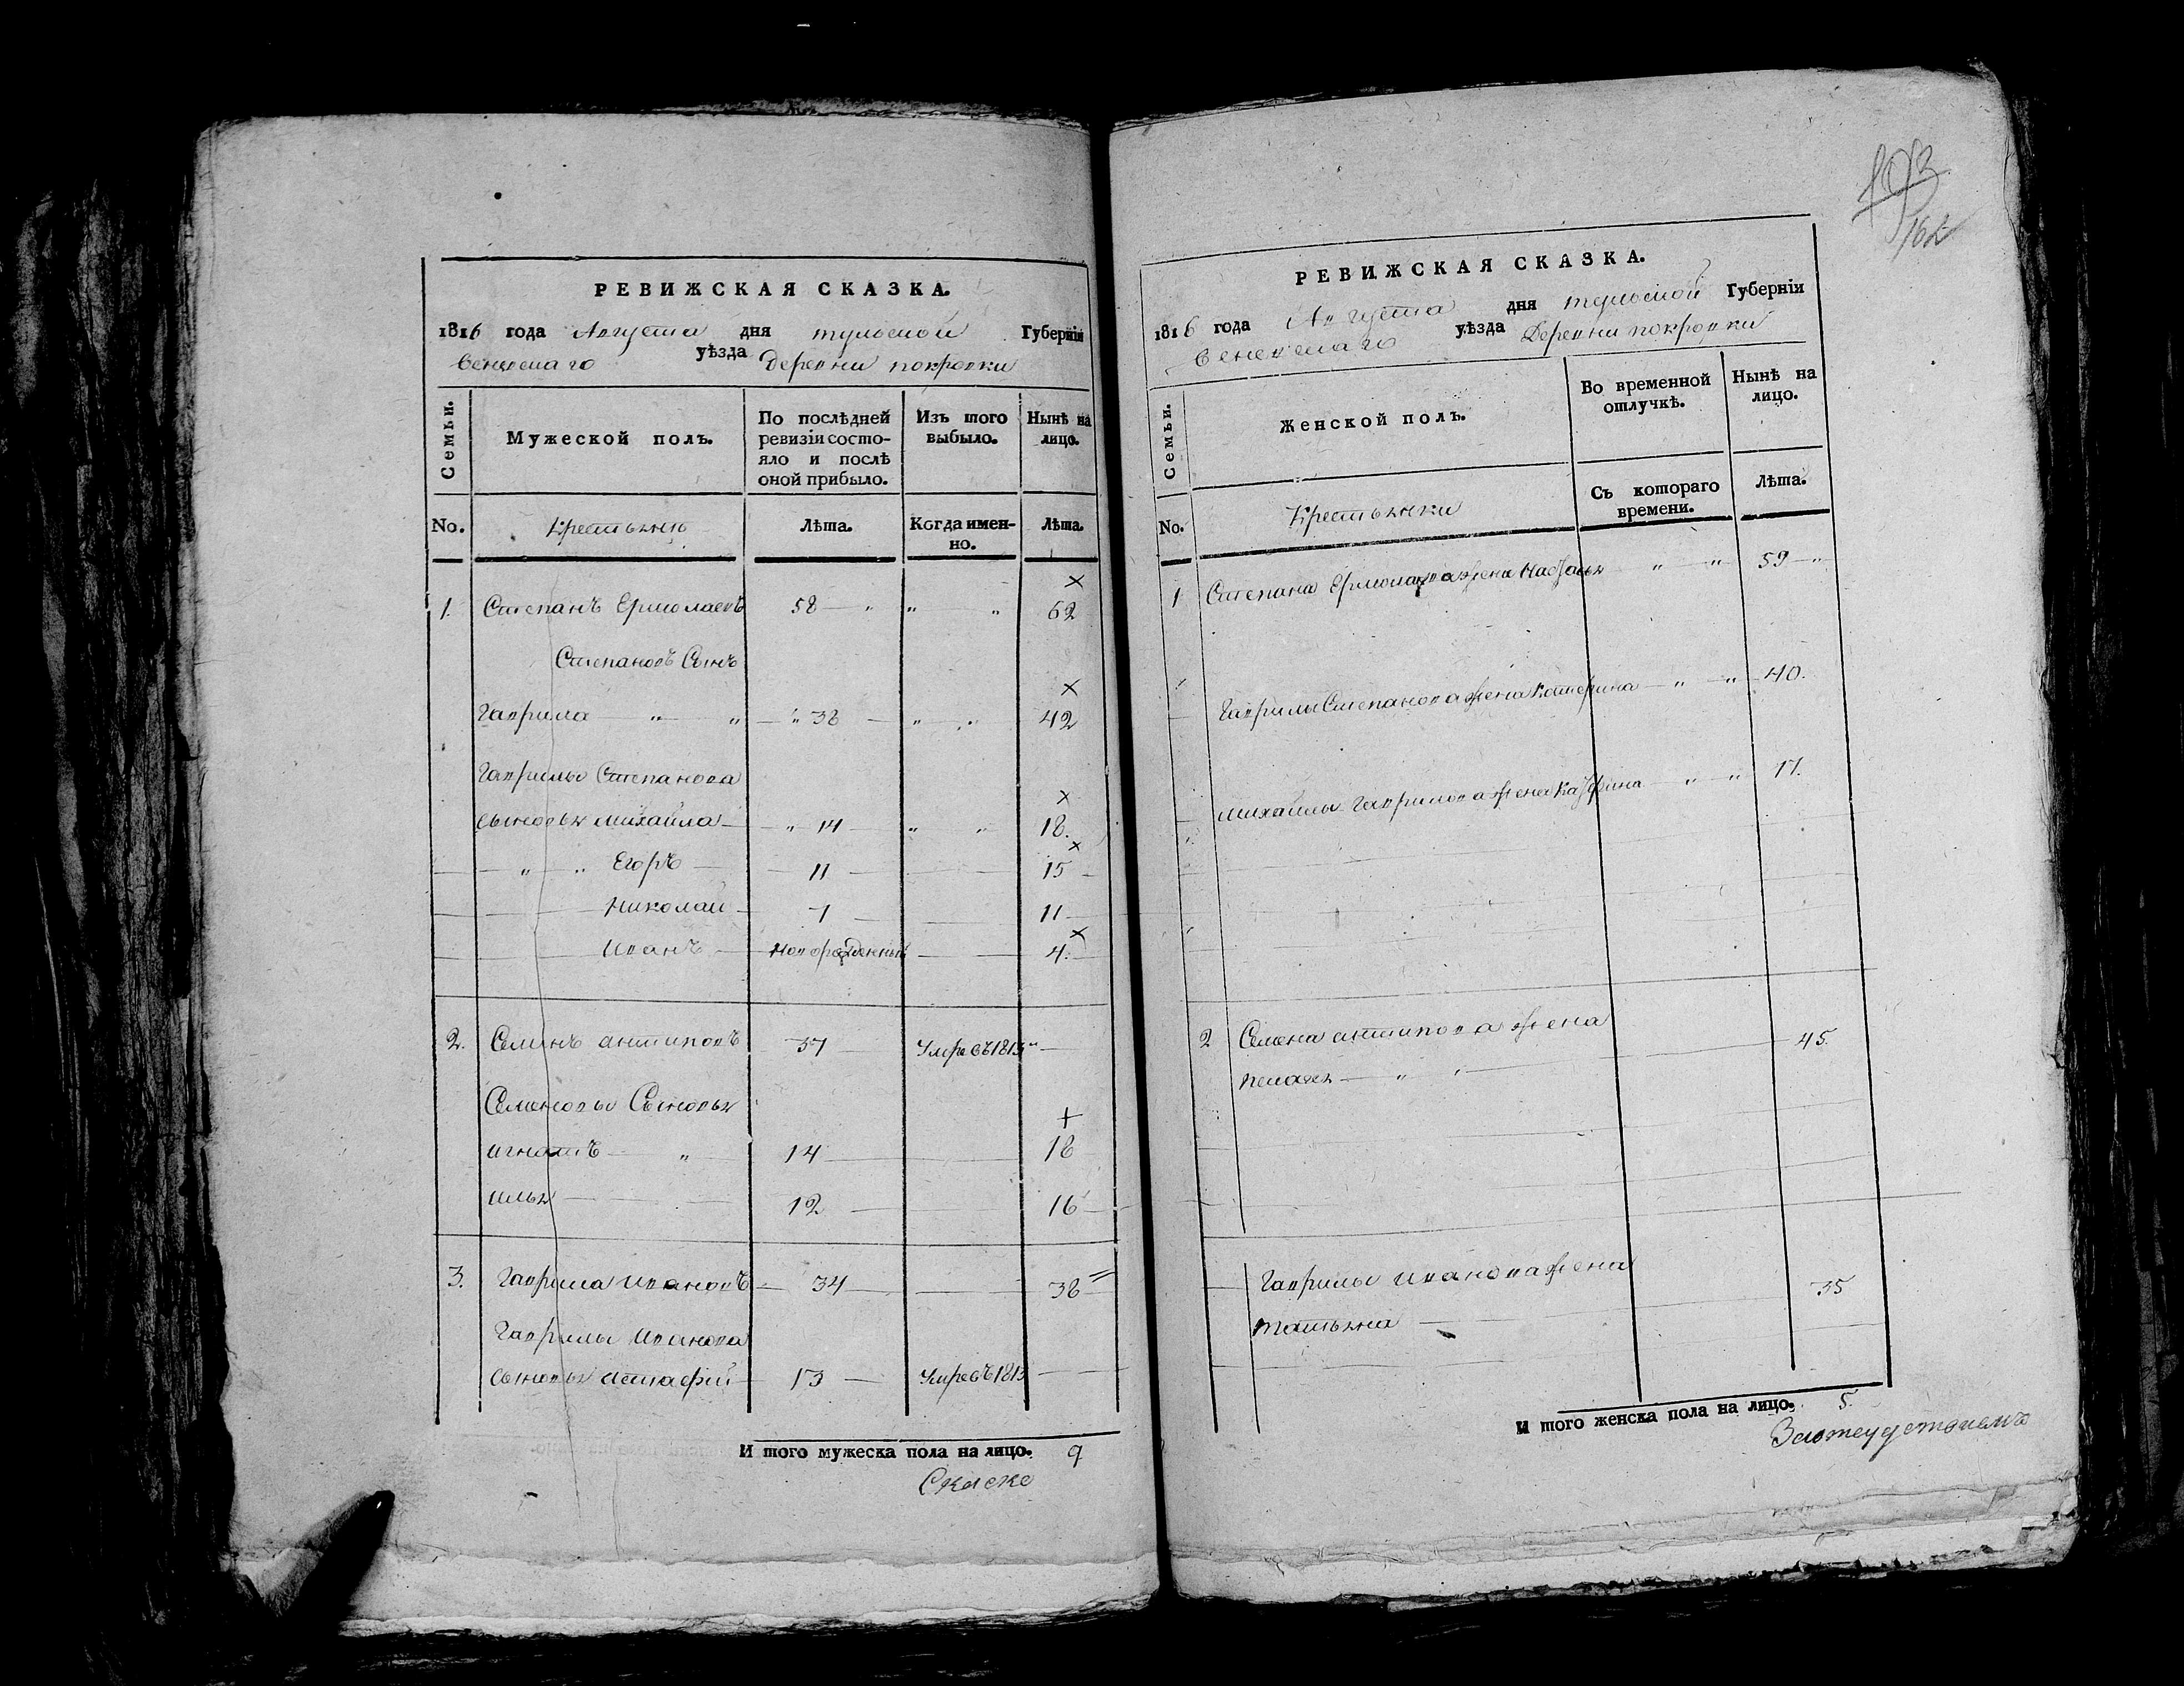 РЕВИЖСКАЯ СКАЗКА.
1816 года Августа дня тульской Губерніи
веневскаго уѣзда Деревни покровки
Семьи.
Мужеской полъ.
По послѣдней ревизіи состояло и послѣ оной прибыло.
Изъ того выбыло.
Нынѣ на лицо.
No.
Крестьяня
Лѣта.
Когда именно.
Лѣта.
1. Степанъ Ермолаевъ 58 — " " " 62
Степановъ Сынъ
Гаврила " " — " 38 — " " 42
Гаврилы Степанова
сыновья михайла — — " 14 — " " 18.
— " — " Егоръ — — 11 — 15 —
Николай — 7 — 11 —
Иванъ — новорожденный — 4. —
2. Семинъ антиповъ — 37 — Умре въ 1813 " —
Семеновы Сыновья
игнатъ — " 14 — 18
илья — 12 — 16 —
3. Гаврила ивановъ — 34 — — 38
Гаврилы Иванова
сыновья — 13 — Умре въ 1813 —
И того мужеска пола на лицо. 9
Скаске
193
162
РЕВИЖСКАЯ СКАЗКА.
1816 года Августа дня тульской Губерніи
веневскаго уѣзда Деревни покровки
Семьи.
Женской полъ.
Во временной отлучкѣ.
Нынѣ на лицо.
No.
Крестьянки
Съ котораго времени.
Лѣта.
1 Степана Ермолаева жена " " 59 — "
Гаврилы Степанова жена катерина — " — " — 40.
михайлы Гаврилова жена — " — " 17.
2 Семена антипова жена
пелагея — " — 45.
Гаврилы иванова жена
татьяна — 35
И того женска пола на лицо. 5.